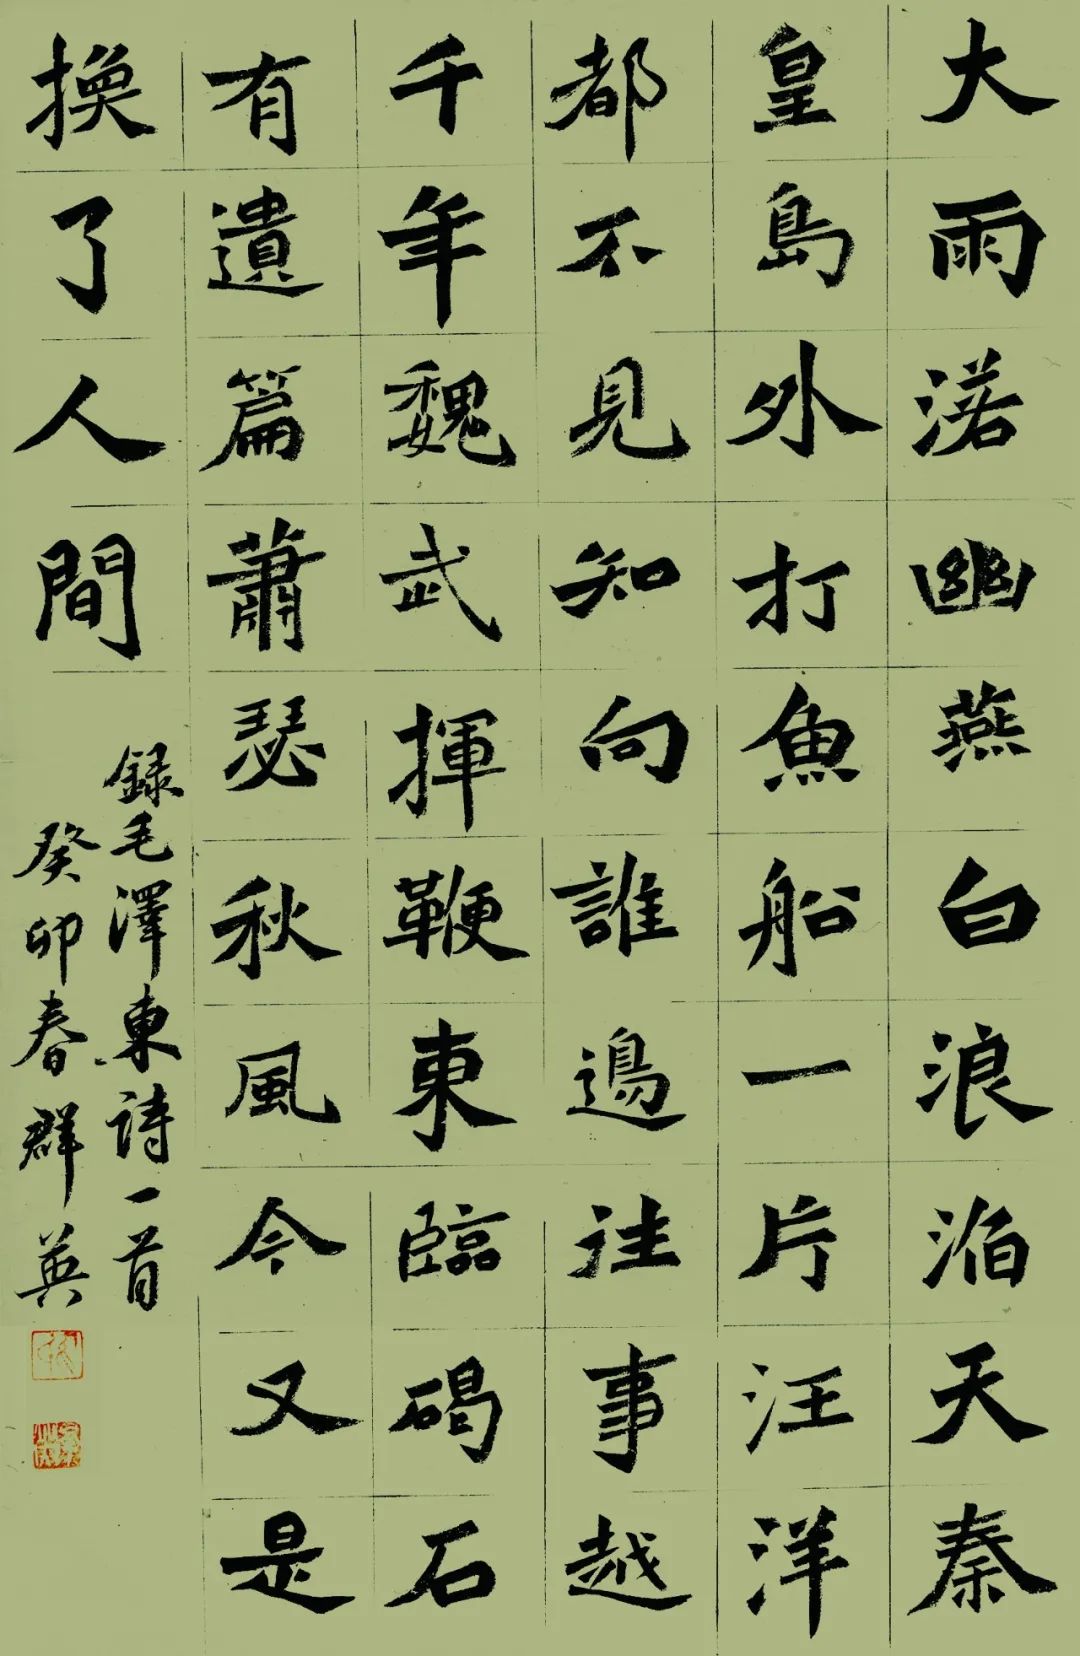 大雨落幽燕白浪滔天秦
皇島外打魚船一片汪洋
都不見知向誰邊往事越
千年魏武揮鞭東臨碣石
有遺篇蕭瑟秋風今又是
換了人間
録毛澤東詩一首
癸卯春群英